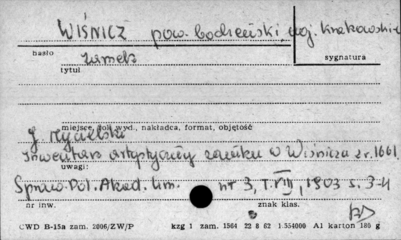 WIŚNICZ pow. bocheński, woj. krakowskie
hasło zamek sygnatura
tytuł
miejsce, rok wyd., nakładca, format, objętość
J. Mycielski
Inwentarz artystyczny zamku w Wiśniczu z r. 1661.
uwagi:
Spraw. Pol. Akad. Um. nr 3, T. VIII, 1903 s. 3-4
nr inw. znak klas.
CWD B-15a zam. 2806/ZW/P kzg 1 zam. 1564 22 8 62 1.554000 A1 karton 180 g